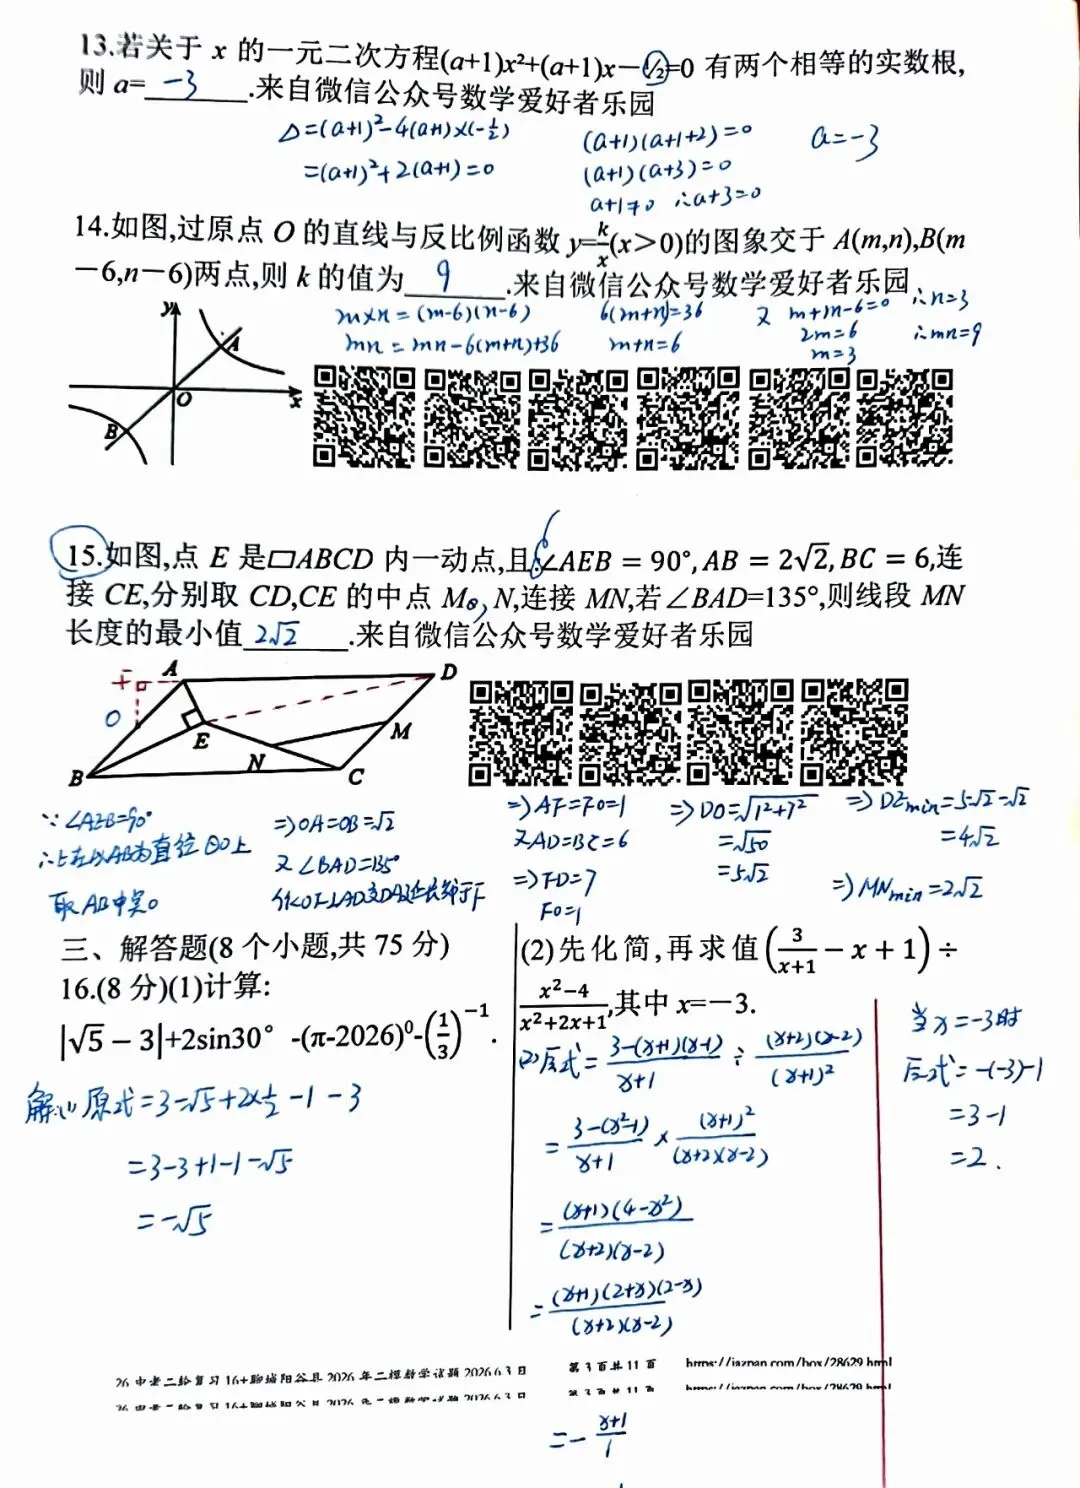 13.若关于 x 的一元二次方程(a+1)x²+(a+1)x－½=0 有两个相等的实数根,
则 a= -3 .来自微信公众号数学爱好者乐园
△=(a+1)²-4(a+1)×(-½)
=(a+1)²+2(a+1)=0
(a+1)(a+1+2)=0
(a+1)(a+3)=0
a+1≠0 ∴a+3=0
a=-3
14.如图,过原点 O 的直线与反比例函数 y=k/x(x＞0)的图象交于 A(m,n),B(m
－6,n－6)两点,则 k 的值为 9 .来自微信公众号数学爱好者乐园
m×n=(m-6)(n-6)
mn=mn-6(m+n)+36
6(m+n)=36
m+n=6
又 m+m-6=0
2m=6
m=3
∴n=3
∴mn=9
y
A
O
x
B
15.如图,点 E 是▱ABCD 内一动点,且∠AEB = 90°, AB = 2√2, BC = 6,连
接 CE,分别取 CD,CE 的中点 M、N,连接 MN,若∠BAD=135°,则线段 MN
长度的最小值 2√2 .来自微信公众号数学爱好者乐园
F
A
D
O
E
M
N
B
C
∵∠AEB=90°
∴E在以AB为直径⊙O上
取AB中点O
=>OA=OB=√2
又∠BAD=135°
作OF⊥AD交DA延长线于F
=>AF=FO=1
又AD=BC=6
=>FD=7
FO=1
=>DO=√(1²+7²)
=√50
=5√2
=>DEmin=5√2-√2
=4√2
=>MNmin=2√2
三、解答题(8 个小题,共 75 分)
16.(8 分)(1)计算:
|√5 − 3|+2sin30° -(π-2026)⁰-(1/3)⁻¹.
解:(1)原式=3-√5+2×½-1-3
=3-3+1-1-√5
=-√5
(2)先化简,再求值(3/(x+1) − x + 1) ÷
(x²−4)/(x²+2x+1),其中 x=－3.
(2)原式=(3-(x+1)(x-1))/(x+1)÷((x+2)(x-2))/(x+1)²
=(3-(x²-1))/(x+1)×(x+1)²/((x+2)(x-2))
=((x+1)(4-x²))/((x+2)(x-2))
=((x+1)(2+x)(2-x))/((x+2)(x-2))
=-(x+1)/1
当x=-3时
原式=-(-3)-1
=3-1
=2.
26 中考二轮复习 16+聊城阳谷县 2026 年二模数学试题 2026.6.3 日 第 3 页共 11 页